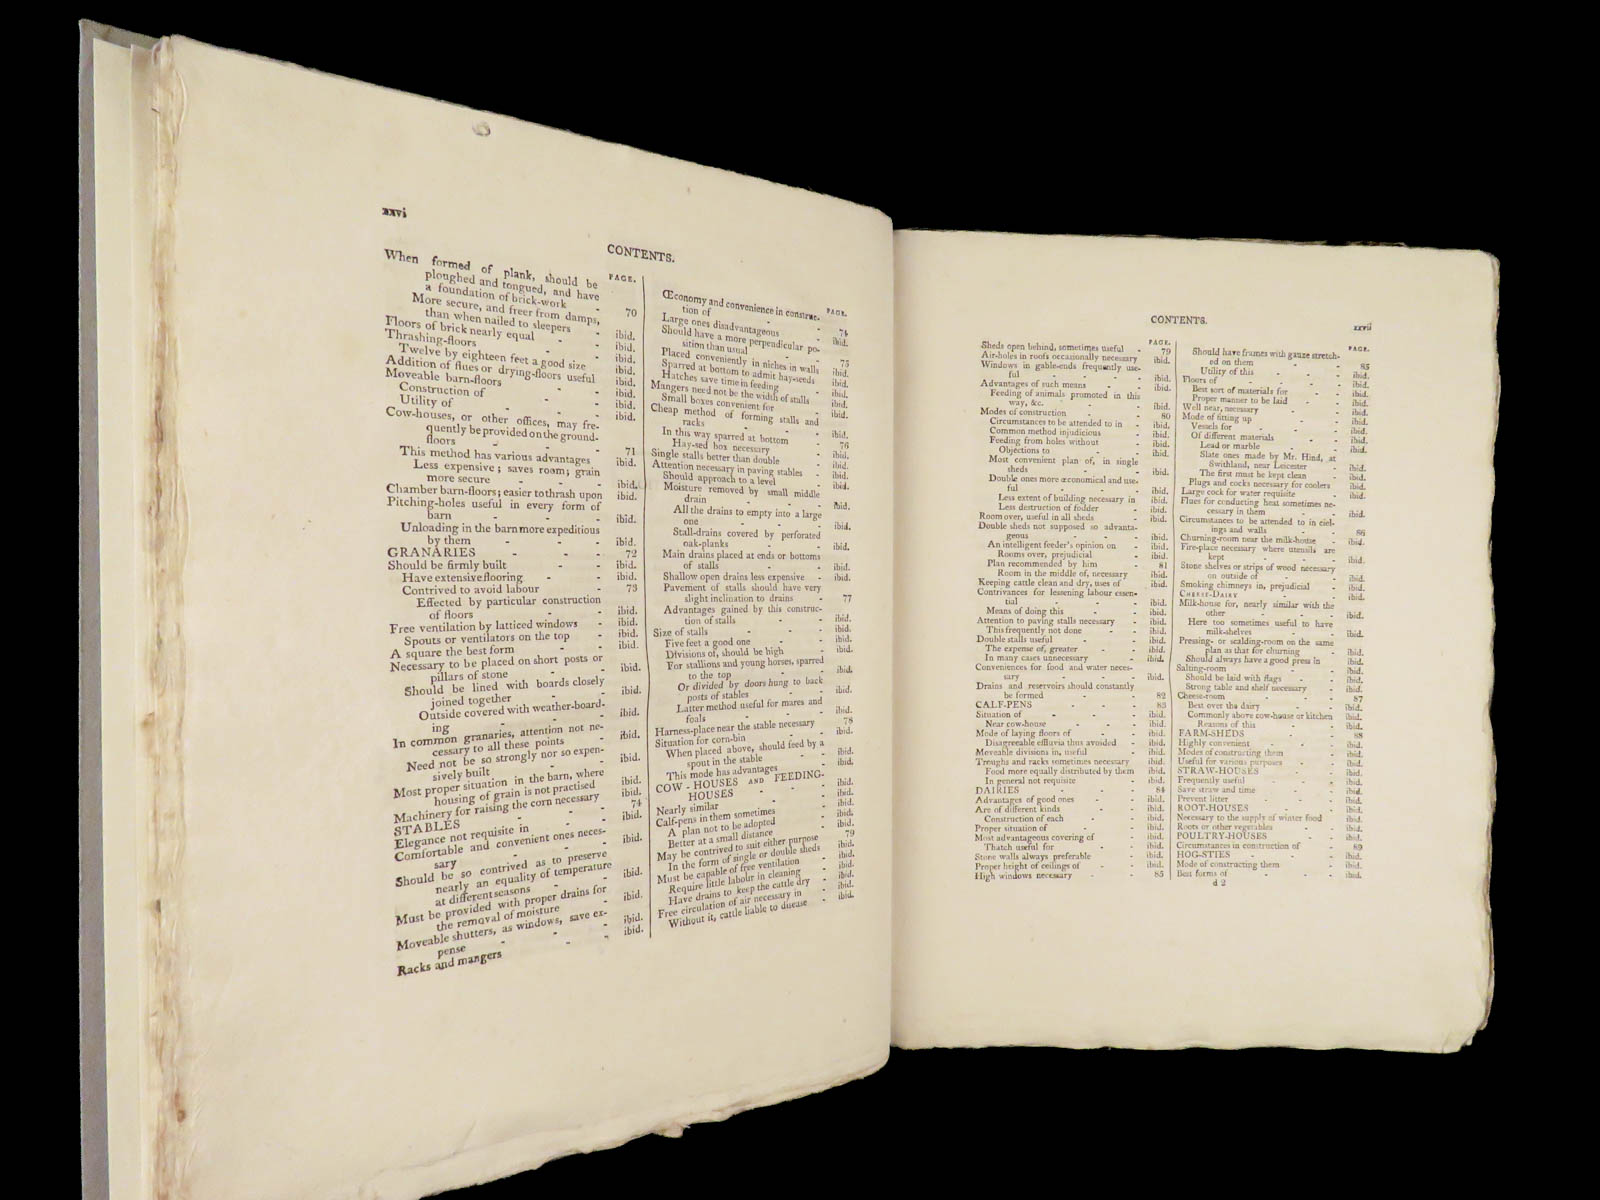 xxvi
CONTENTS.
PAGE.
When formed of plank, should be
ploughed and tongued, and have
a foundation of brick-work - 70
More secure, and freer from damps,
than when nailed to sleepers - ibid.
Floors of brick nearly equal - - ibid.
Thrashing-floors - - ibid.
Twelve by eighteen feet a good size ibid.
Addition of flues or drying-floors useful ibid.
Moveable barn-floors - - ibid.
Construction of - - ibid.
Utility of - - ibid.
Cow-houses, or other offices, may fre-
quently be provided on the ground-
floors - - 71
This method has various advantages ibid.
Less expensive; saves room; grain
more secure - - - ibid.
Chamber barn-floors; easier to thrash upon ibid.
Pitching-holes useful in every form of
barn - - - ibid.
Unloading in the barn more expeditious
by them - - - ibid.
GRANARIES - - - 72
Should be firmly built - - ibid.
Have extensive flooring - - ibid.
Contrived to avoid labour - 73
Effected by particular construction
of floors - - - ibid.
Free ventilation by latticed windows - ibid.
Spouts or ventilators on the top - ibid.
A square the best form - - ibid.
Necessary to be placed on short posts or
pillars of stone - - ibid.
Should be lined with boards closely
joined together - - ibid.
Outside covered with weather-board-
ing - - - ibid.
In common granaries, attention not ne-
cessary to all these points - ibid.
Need not be so strongly nor so expen-
sively built - - ibid.
Most proper situation in the barn, where
housing of grain is not practised ibid.
Machinery for raising the corn necessary ibid.
STABLES - - - 74
Elegance not requisite in - - ibid.
Comfortable and convenient ones neces-
sary - - - ibid.
Should be so contrived as to preserve
nearly an equality of temperature
at different seasons - - ibid.
Must be provided with proper drains for
the removal of moisture - ibid.
Moveable shutters, as windows, save ex-
pense - - - ibid.
Racks and mangers - - ibid.
PAGE.
Œconomy and convenience in construc-
tion of - - 74
Large ones disadvantageous - ibid.
Should have a more perpendicular po-
sition than usual - - 75
Placed conveniently in niches in walls ibid.
Sparred at bottom to admit hay-seeds ibid.
Hatches save time in feeding - ibid.
Mangers need not be the width of stalls ibid.
Small boxes convenient for - ibid.
Cheap method of forming stalls and
racks - - - ibid.
In this way sparred at bottom - 76
Hay-sed box necessary - ibid.
Single stalls better than double - ibid.
Attention necessary in paving stables - ibid.
Should approach to a level - ibid.
Moisture removed by small middle
drain - - - ibid.
All the drains to empty into a large
one - - - ibid.
Stall-drains covered by perforated
oak-planks - - ibid.
Main drains placed at ends or bottoms
of stalls - - - ibid.
Shallow open drains less expensive - ibid.
Pavement of stalls should have very
slight inclination to drains - 77
Advantages gained by this construc-
tion of stalls - - ibid.
Size of stalls - - - ibid.
Five feet a good one - - ibid.
Divisions of, should be high - ibid.
For stallions and young horses, sparred
to the top - - ibid.
Or divided by doors hung to back
posts of stables - - ibid.
Latter method useful for mares and
foals - - - ibid.
Harness-place near the stable necessary 78
Situation for corn-bin - - ibid.
When placed above, should feed by a
spout in the stable - - ibid.
This mode has advantages - ibid.
COW-HOUSES AND FEEDING-
HOUSES - - - ibid.
Nearly similar - - ibid.
Calf-pens in them sometimes - ibid.
A plan not to be adopted - ibid.
Better at a small distance - ibid.
May be contrived to suit either purpose 79
In the form of single or double sheds ibid.
Must be capable of free ventilation - ibid.
Require little labour in cleaning - ibid.
Have drains to keep the cattle dry - ibid.
Free circulation of air necessary in - ibid.
Without it, cattle liable to disease - ibid.
CONTENTS.
xxvii
PAGE.
Sheds open behind, sometimes useful - 79
Air-holes in roofs occasionally necessary ibid.
Windows in gable-ends frequently use-
ful - - - - ibid.
Advantages of such means - - ibid.
Feeding of animals promoted in this
way, &c. - - - ibid.
Modes of construction - - 80
Circumstances to be attended to in - ibid.
Common method injudicious - ibid.
Feeding from holes without - ibid.
Objections to - - ibid.
Most convenient plan of, in single
sheds - - - ibid.
Double ones more œconomical and use-
ful - - - - ibid.
Less extent of building necessary in ibid.
Less destruction of fodder - ibid.
Room over, useful in all sheds - ibid.
Double sheds not supposed so advanta-
geous - - - ibid.
An intelligent feeder's opinion on - ibid.
Rooms over, prejudicial - ibid.
Plan recommended by him - 81
Room in the middle of, necessary ibid.
Keeping cattle clean and dry, uses of ibid.
Contrivances for lessening labour essen-
tial - - - ibid.
Means of doing this - - ibid.
Attention to paving stalls necessary - ibid.
This frequently not done - - ibid.
Double stalls useful - - ibid.
The expense of, greater - - ibid.
In many cases unnecessary - ibid.
Conveniences for food and water neces-
sary - - - ibid.
Drains and reservoirs should constantly
be formed - - - 82
CALF-PENS - - - 83
Situation of - - - - ibid.
Near cow-house - - - ibid.
Mode of laying floors of - - ibid.
Disagreeable effluvia thus avoided - ibid.
Moveable divisions in, useful - ibid.
Troughs and racks sometimes necessary ibid.
Food more equally distributed by them ibid.
In general not requisite - ibid.
DAIRIES - - - 84
Advantages of good ones - - ibid.
Are of different kinds - - ibid.
Construction of each - - ibid.
Proper situation of - - ibid.
Most advantageous covering of - ibid.
Thatch useful for - - ibid.
Stone walls always preferable - ibid.
Proper height of ceilings of - - ibid.
High windows necessary - - 85
PAGE.
Should have frames with gauze stretch-
ed on them - - 85
Utility of this - - - ibid.
Floors of - - - ibid.
Best sort of materials for - - ibid.
Proper manner to be laid - - ibid.
Well near, necessary - - ibid.
Mode of fitting up - - - ibid.
Vessels for - - - ibid.
Of different materials - - ibid.
Lead or marble - - - ibid.
Slate ones made by Mr. Hind, at
Swithland, near Leicester - ibid.
The first must be kept clean - ibid.
Plugs and cocks necessary for coolers ibid.
Large cock for water requisite - ibid.
Flues for conducting heat sometimes ne-
cessary in them - - ibid.
Circumstances to be attended to in ciel-
ings and walls - - 86
Churning-room near the milk-house - ibid.
Fire-place necessary where utensils are
kept - - - ibid.
Stone shelves or strips of wood necessary
on outside of - - ibid.
Smoking chimneys in, prejudicial - ibid.
CHEESE-DAIRY - - ibid.
Milk-house for, nearly similar with the
other - - - ibid.
Here too sometimes useful to have
milk-shelves - - ibid.
Pressing- or scalding-room on the same
plan as that for churning - ibid.
Should always have a good press in ibid.
Salting-room - - - ibid.
Should be laid with flags - - ibid.
Strong table and shelf necessary - ibid.
Cheese-room - - - 87
Best over the dairy - - ibid.
Commonly above cow-house or kitchen ibid.
Reasons of this - - ibid.
FARM-SHEDS - - 88
Highly convenient - - - ibid.
Modes of constructing them - ibid.
Useful for various purposes - - ibid.
STRAW-HOUSES - - ibid.
Frequently useful - - - ibid.
Save straw and time - - ibid.
Prevent litter - - - ibid.
ROOT-HOUSES - - ibid.
Necessary to the supply of winter food ibid.
Roots or other vegetables - - ibid.
POULTRY-HOUSES - - ibid.
Circumstances in construction of - 89
HOG-STIES - - - ibid.
Mode of constructing them - ibid.
Best forms of - - - ibid.
d 2